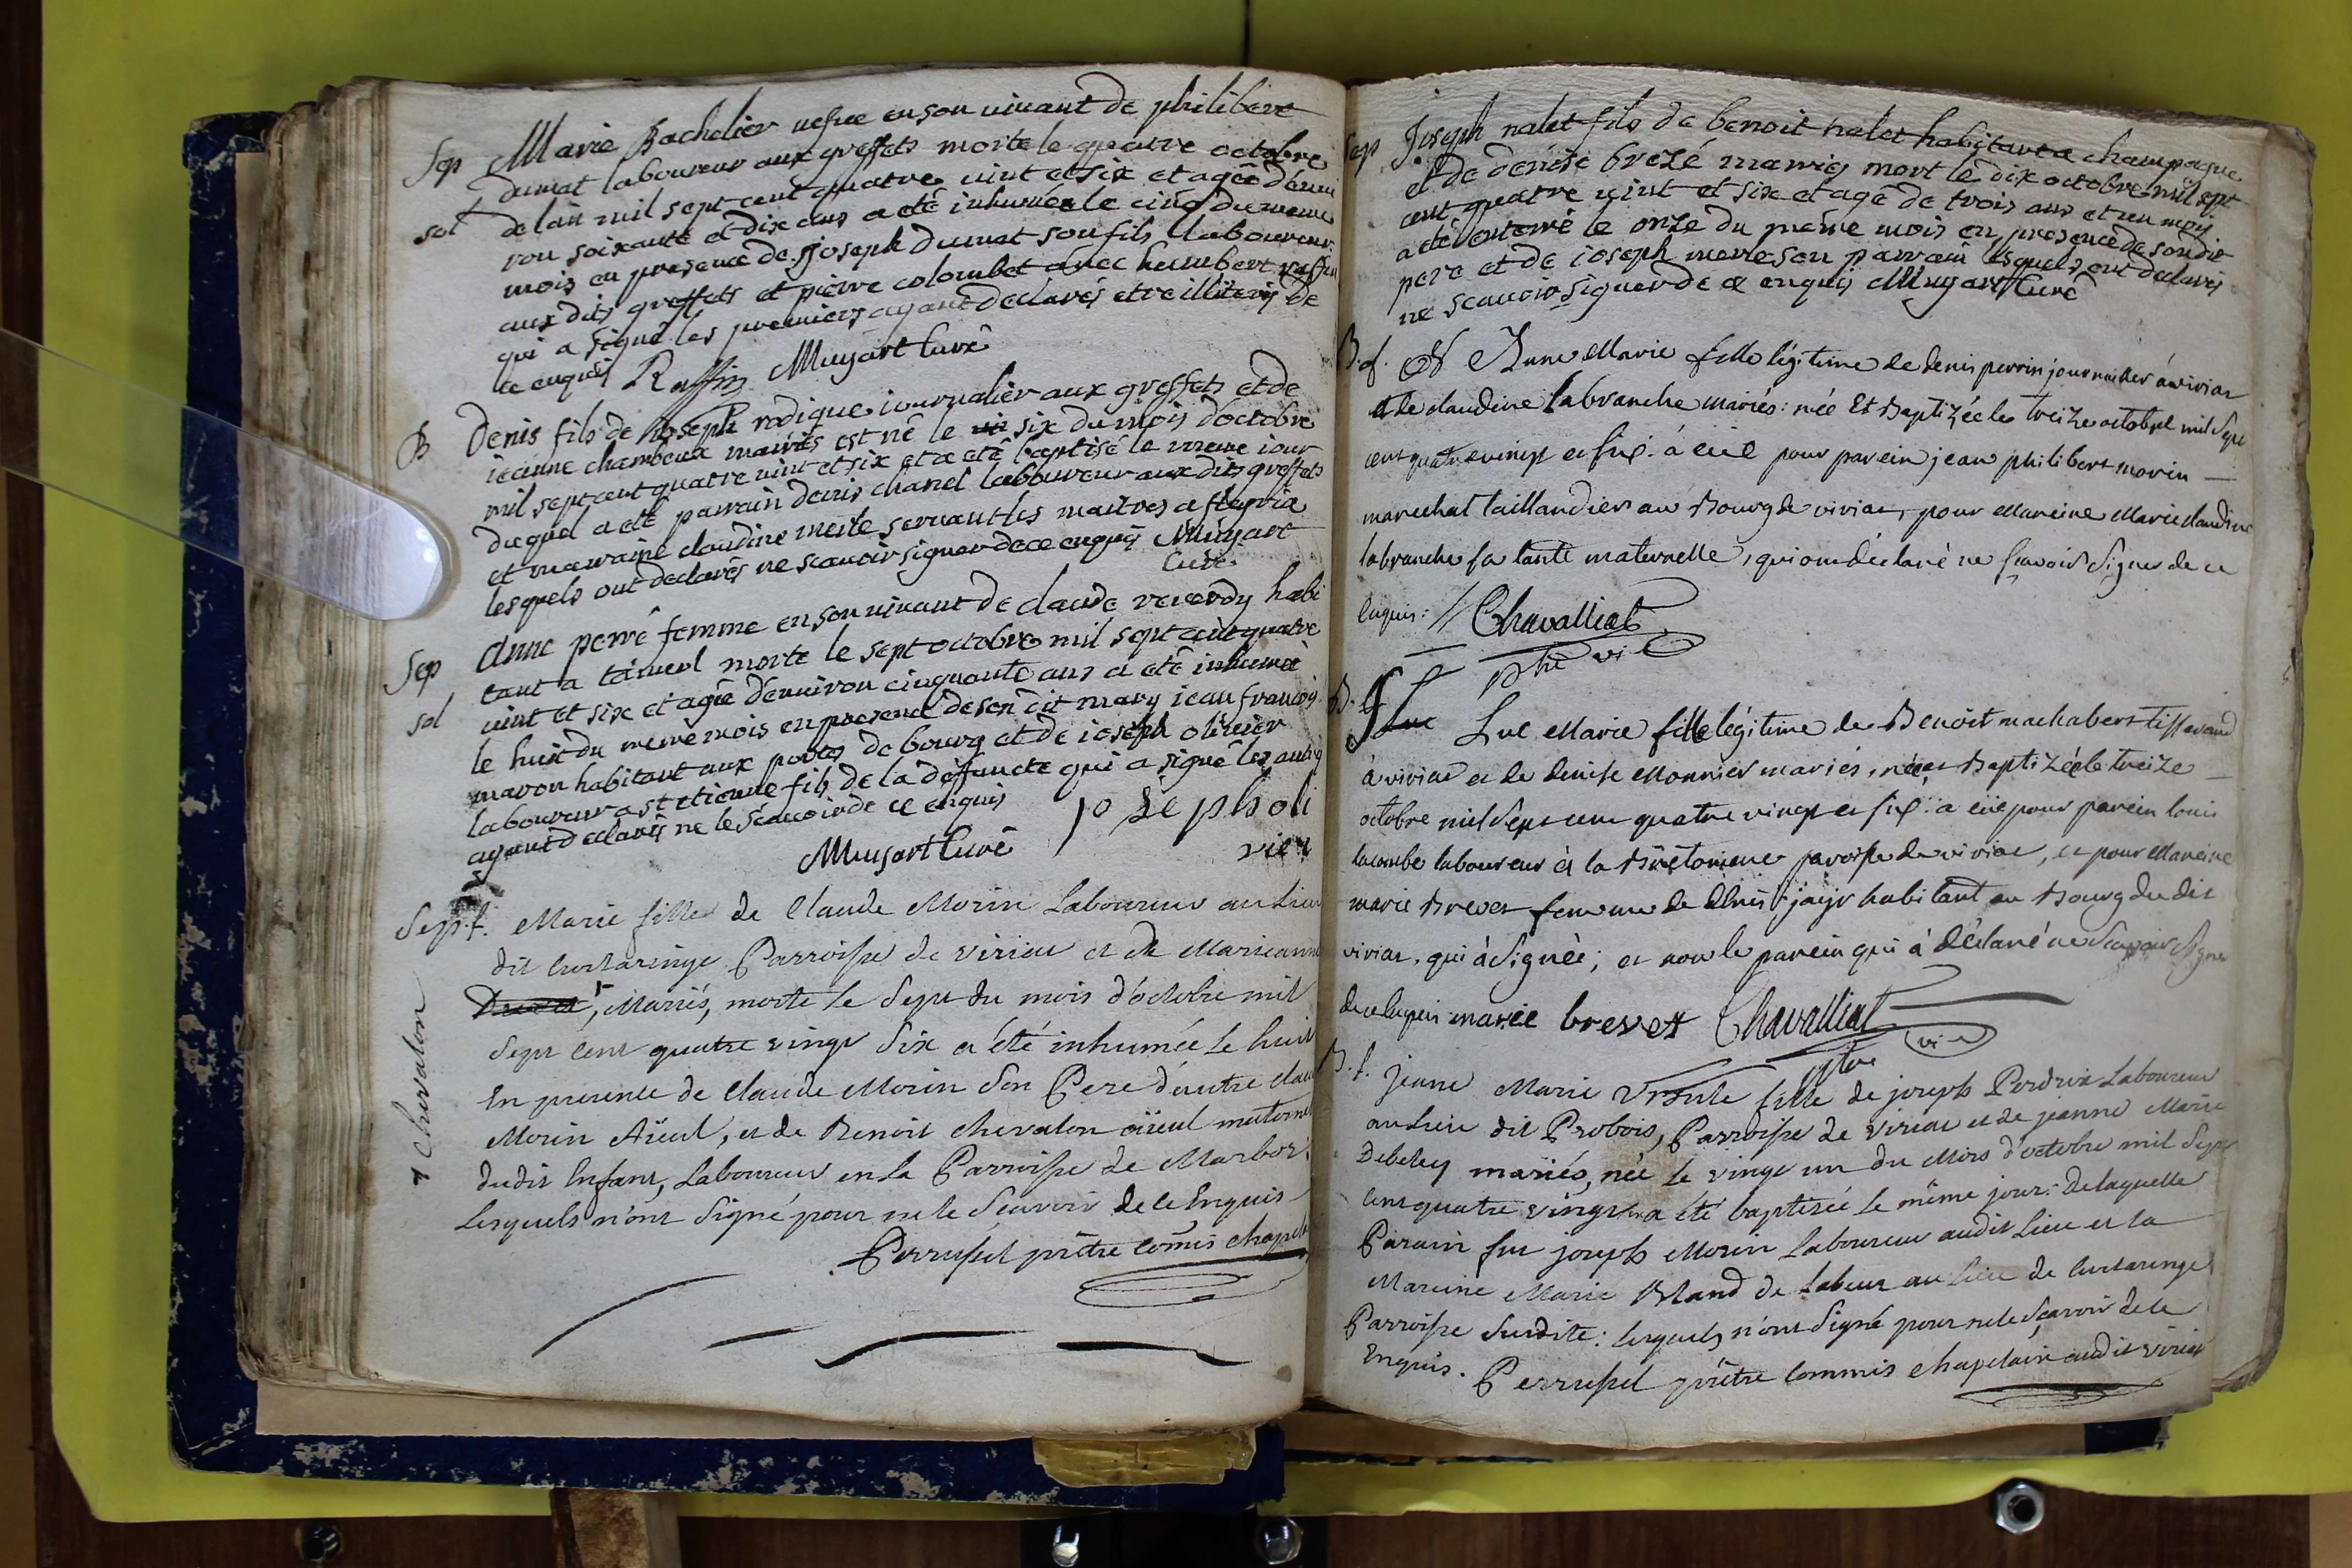 Sep Marie Bachelier vefve en son vivant de philibert
sol dumat laboureur aux greffets morte le quatre octobre
de lan mil sept cent quatre vint et six et agée d'envi
ron soixante et dix ans a eté inhumée le cinq du meme
mois en presence de joseph dumat son fils laboureur
aux dits greffets et pierre colombet avec humbert raffin
qui a signé les premiers ayant declarés etre illiterés de
ce enquis Raffin Muyart Curé
B Denis fils de joseph rodigue journalier aux greffets et de
jeanne chambeux mariés est né le six du mois d'octobre
mil sept cent quatre vint et six et a eté baptisé le meme jour
duquel a eté parrain denis chanel laboureur aux dits greffets
et marraine claudine merle servant les maitres a fleyria
lesquels ont declarés ne scavoir signer de ce enquis Muyart
Curé
Sep Anne perré femme en son vivant de claude verordy habi
tant a morte le sept octobre mil sept cent quatre
sol vint et six et agée d'environ cinquante ans a eté inhumée
le huit du meme mois en presence de son dit mary jean francois
maron habitant aux portes de bourg et de joseph olivier
laboureur a st etienne fils de la deffuncte qui a signé les autres
ayant declarés ne le scavoir de ce enquis joseph oli
Muyart Curé vier
Sep. f. Marie fille de Claude Morin Laboureur au Lieu
dit Curtaringe Parroisse de Viriat et de Marieanne
† Mariés, morte le Sept du mois d'octobre mil
Sept Cent quatre vingt Six a été inhumée le huit
En presence de Claude Morin Son Pere d'autre Claude
Morin Aïeul, et de Benoit Chevalon aïeul maternel
dudit Enfant, Laboureur en la Parroisse de Marboz:
Lesquels n'ont Signé pour ne le Sçavoir de ce Enquis
Perrussel prêtre Comis chapel
† Chevalon
Sep Joseph nalet fils de benoit nalet habitant a champagne
et de denise brezé mariés mort le dix octobre mil sept
cent quatre vint et six et agé de trois ans et un mois
a eté enterré le onze du meme mois en presence de son dit
pere et de joseph merle son parrain lesquels ont declarés
ne scavoir signer de ce enquis Muyart Curé
B. f. Anne Marie fille légitime de denis perrin journalier à viriat
et de claudine labranche mariés: née Et Baptizée le treize octobre mil Sept
cent quatre vingt et six. à eue pour parein jean philibert morin
marechal taillandier au Bourg de viriat, pour Mareine Marie claudine
labranche sa tante maternelle, qui ont déclaré ne sçavoir Signer de ce
Enquis: // Chavalliat
ptre vi
B. f. Luc Luc Marie fille légitime de Benoit machabert tisserand
à viriat et de denise Monnier mariés, née et Baptizée le treize
octobre mil Sept cent quatre vingt et six: a eue pour parein louis
lacombe laboureur à la parroisse de viriat, et pour Mareine
marie Brevet femme de denis jayr habitant au Bourg du dit
viriat, qui à Signée; et non le parein qui à déclaré ne Sçavoir Signer
de ce Enquis marie brevet Chavalliat
ptre vi
B. f. Jeane Marie Ursule fille de joseph Perdrix Laboureur
au Lieu dit Probois, Parroisse de Viriat et de jeanne Marie
Debeley mariés, née le vingt un du Mois d'octobre mil Sept
Cent quatre vingt a été baptisée le même jour: De laquelle
Parain fut joseph Morin Laboureur audit Lieu et la
Mareine Marie Bland de Labeur au Lieu de Curtaringe
Parroisse Susdite: lesquels n'ont Signé pour ne le Sçavoir de ce
Enquis. Perrussel prêtre Commis chapelain audit Viriat